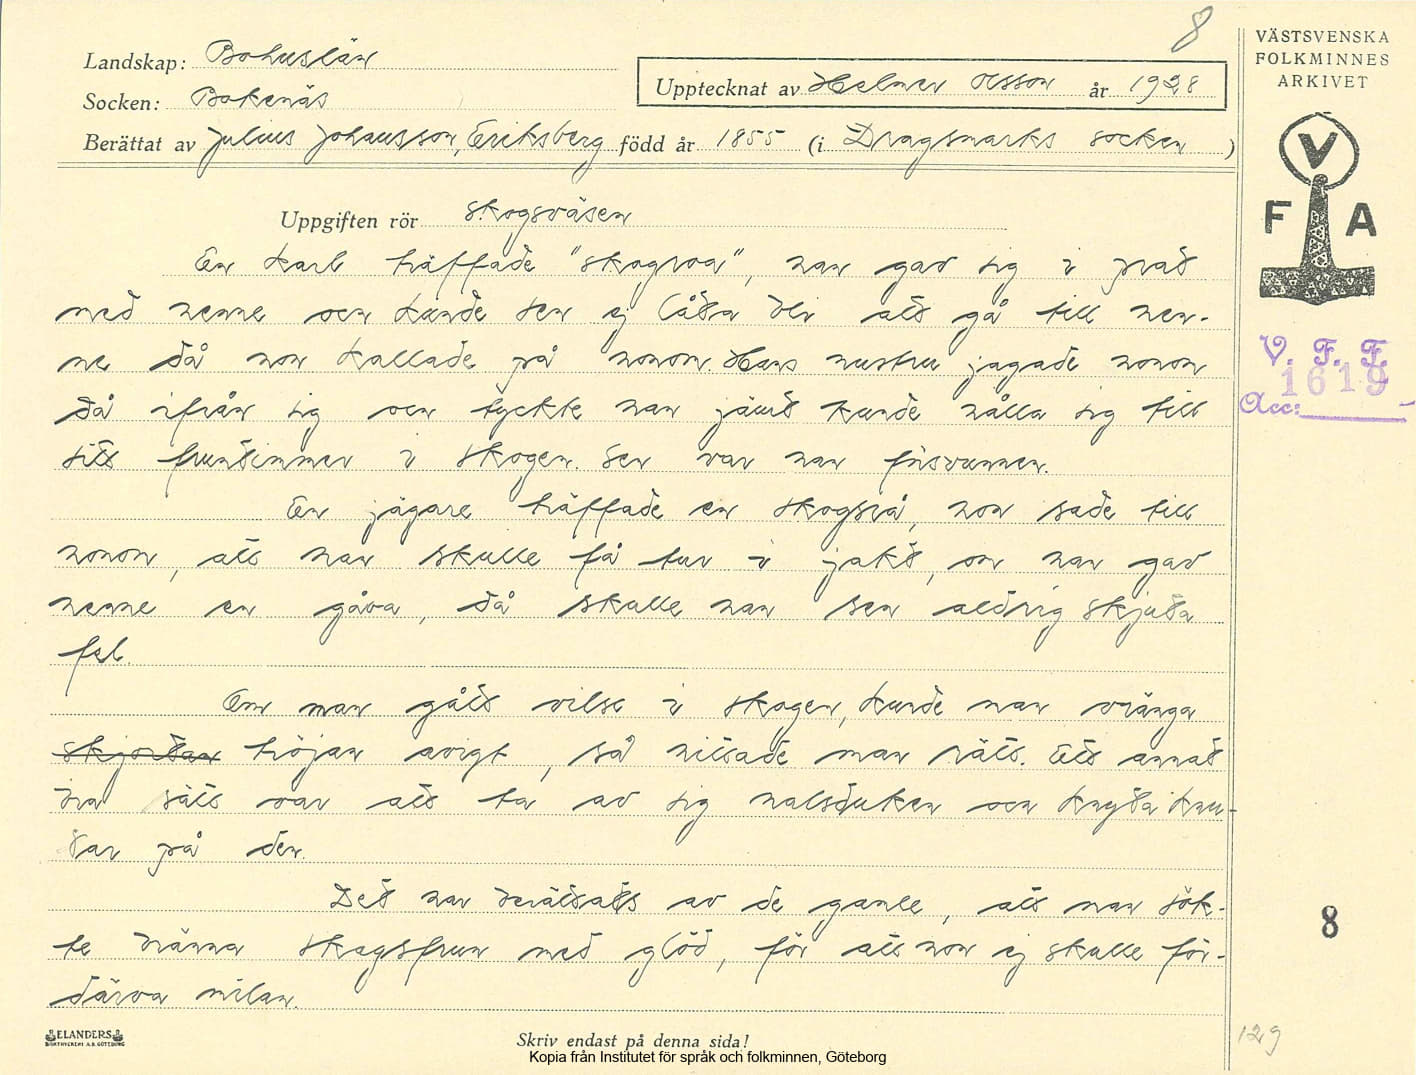 8
VÄSTSVENSKA
FOLKMINNES
ARKIVET
Landskap: Bohuslän
Socken: Bokenäs
Upptecknat av Helmer Olsson år 1928
Berättat av Julius Johansson, Eriksberg född år 1855 (i Dragsmarks socken)
V
F A
Uppgiften rör skogsväsen
En karl träffade "skogroa", han gav sig i prat
med henne och kunde sen ej låta bli att gå till hen-
ne då hon kallade på honom. Hans hustru jagade honom
då ifrån sig och tyckte han jämt kunde hålla sig till
sitt fruntimmer i skogen. Sen var han försvunnen.
En jägare träffade en skogsrå, hon sade till
honom, att han skulle få tur i jakt, om han gav
henne en gåva, då skulle han sen aldrig skjuta
fel.
Om man gått vilse i skogen, kunde man vränga
skjortan tröjan avigt, så hittade man rätt. Ett annat
bra sätt var att ta av sig halsduken och knyta knu-
tar på den.
Det har berättats av de gamle, att man sök-
te bränna skogsfrun med glöd, för att hon ej skulle för-
därva milan.
V. F. F.
1619
Acc:
8
129
ELANDERS
BOKTRYCKERI A.B. GÖTEBORG
Skriv endast på denna sida!
Kopia från Institutet för språk och folkminnen, Göteborg